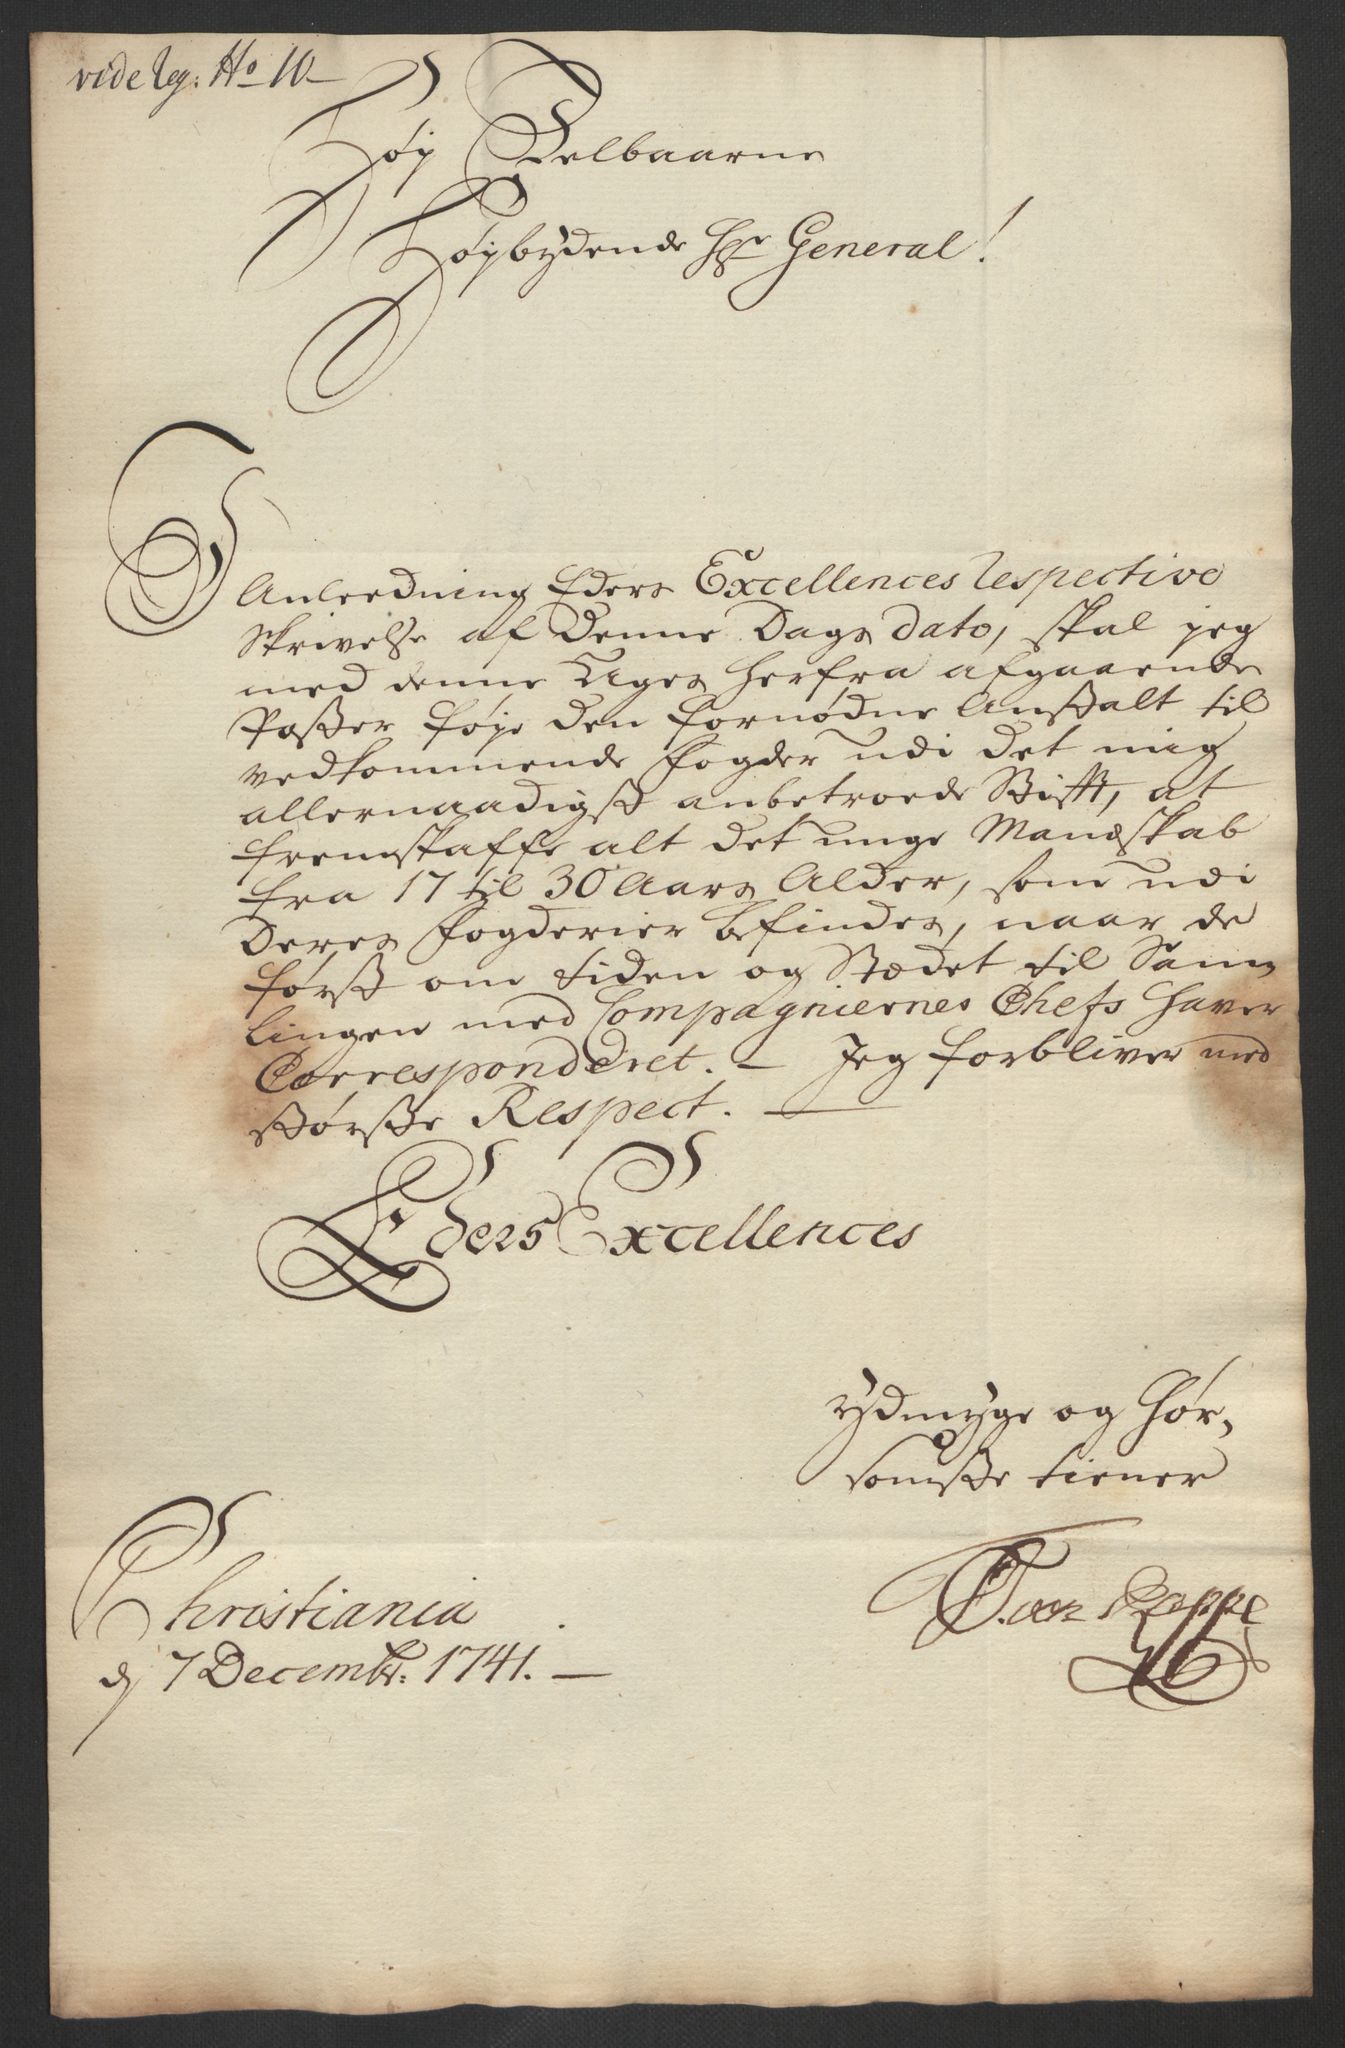 vide reg: No 10
Høy Edelbaarne
Høybydende Hr General!
I
Anleedning Eders Excellences respective
Skrivelse af Denne Dags dato, skal jeg
med denne Uges herfra afgaaende
Poster føye den fornødne Anstalt til
vedkommende Fogder udi det mig
allernaadigst anbetroede Stifft, at
fremskaffe alt det unge Mandskab
fra 17 til 30 Aars Alder, som udi
Deres Fogderier befindes, naar de
først om tiden og Stædet til Sam¬
lingen med Compagniernes Chefs haver
Correspondéret. — Jeg forbliver med
største Respect. —
Eders Excellences
ydmyge og hør¬
somste tiener
Christiania
d 7 Decembr: 1741. —
J. von Rappe